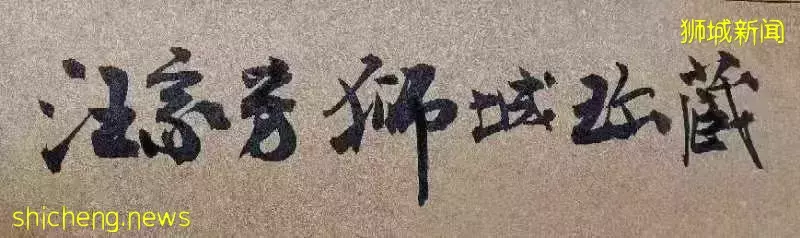 狮城新闻
汪家芳狮城珍藏
shicheng.news